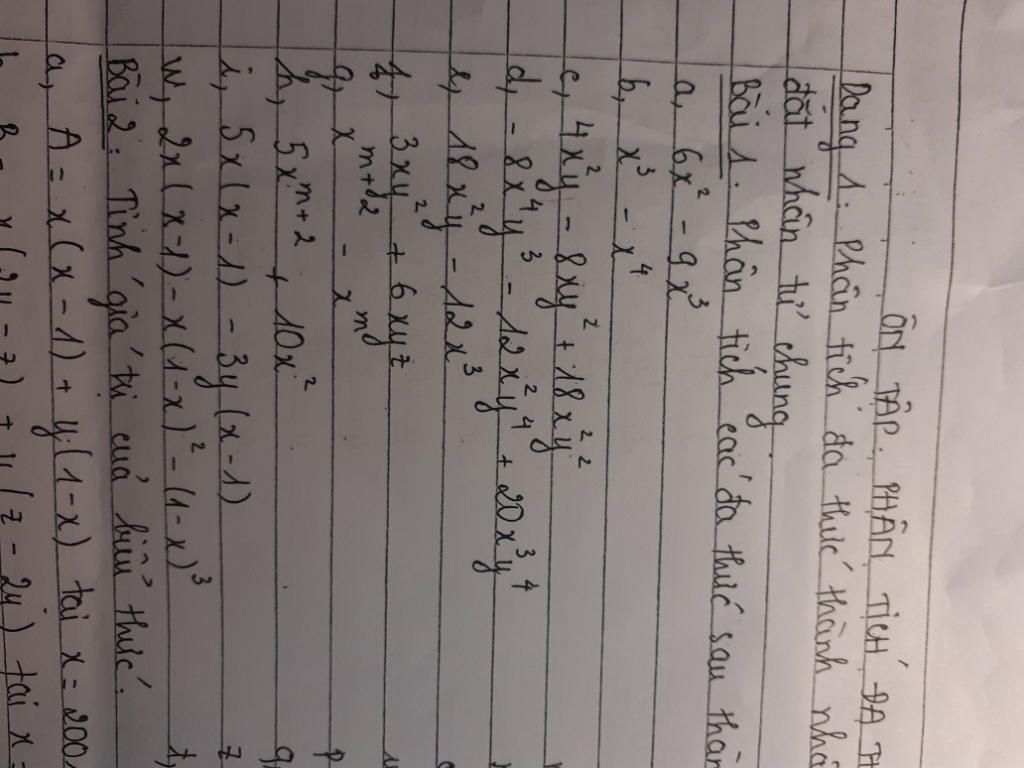 ÔN TẬP: PHÂN TÍCH ĐA TH
Dạng 1: Phân tích đa thức thành nhâ
đặt nhân tử chung
Bài 1: Phân tích các đa thức sau thàn
a, 6x² - 9x³
b, x³ - x⁴
c, 4x²y - 8xy² + 18x²y²
d, - 8x⁴y³ - 12x²y⁴ + 20x³y⁴
e, 18x²y - 12x³
f, 3xy² + 6xyz
g, x^{m+2} - x^m
h, 5x^{m+2} + 10x²
i, 5x(x - 1) - 3y(x - 1)
w, 2x(x-1) - x(1-x)² - (1-x)³
Bài 2: Tính giá trị của biểu thức:
a, A = x(x - 1) + y(1-x) tại x = 200
B = x(2y - z) + y(z - 2y) tại x =